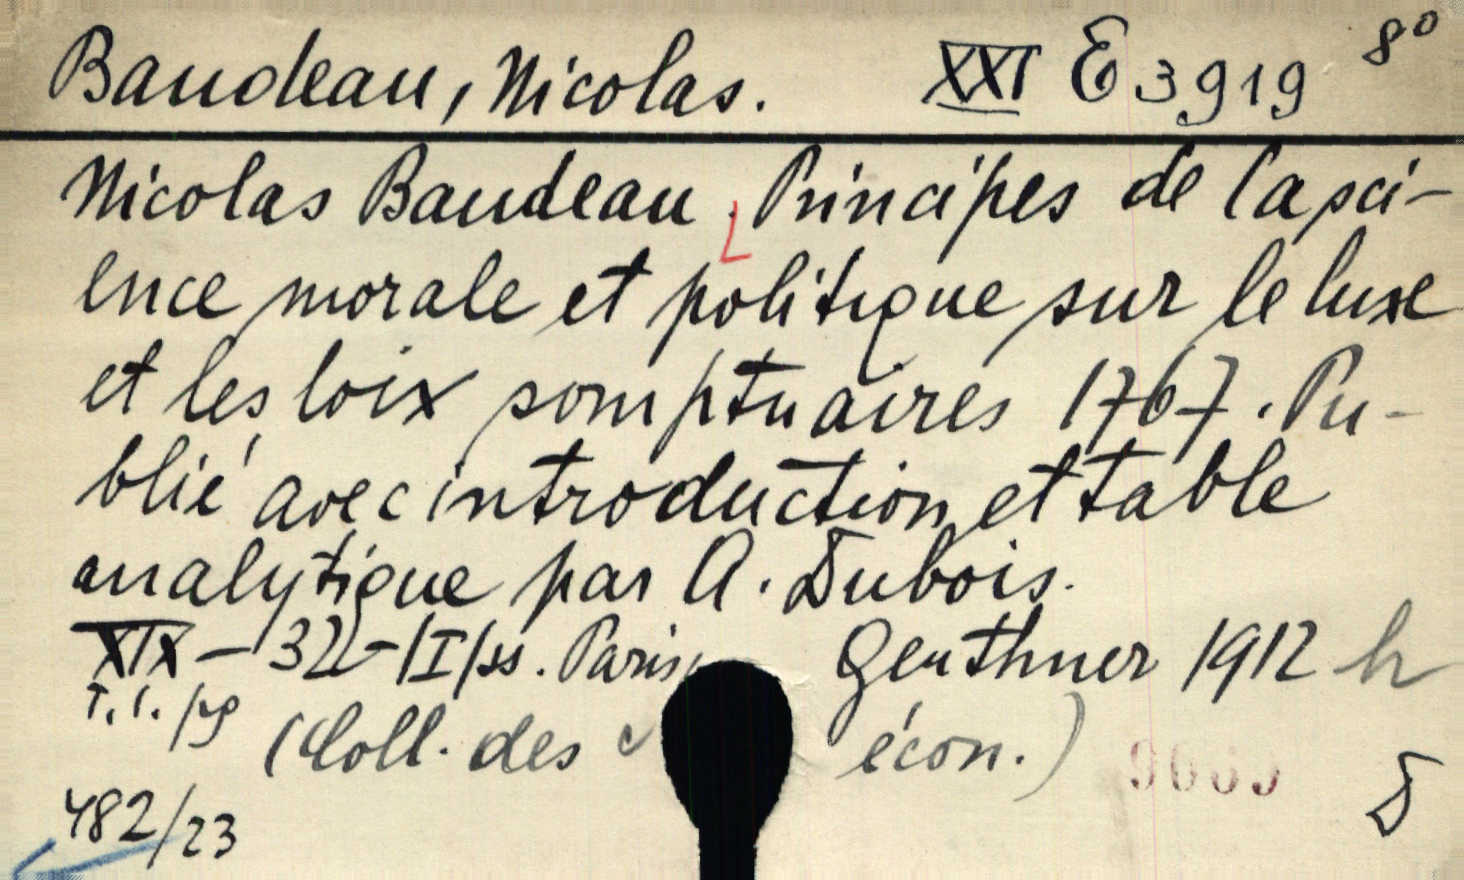 Baudeau, Nicolas. XXI E 3919 8°
Nicolas Baudeau. Principes de la sci-
ence morale et politique sur le luxe
et les loix somptuaires 1767. Pu-
blié avec introduction et table
analytique par A. Dubois.
XIX - 32 - |I| ss. Paris, Geuthner 1912
(Coll. des écon.)
482/23